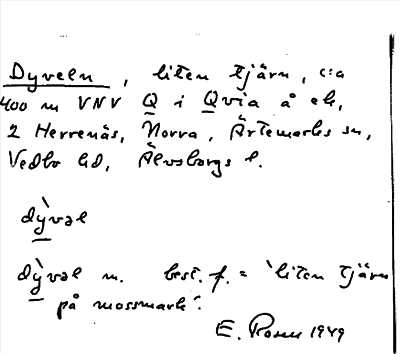 Dyveln, liten tjärn, c:a
400 m VNV Q i Qvia å ek,
2 Herrenäs, Norra, Ärtemarks sn,
Vedbo hd, Älvsborgs l.
dỳvəl
dỳvəl m. best. f. = 'liten tjärn
på mossmark'.
E. Rosen 1949